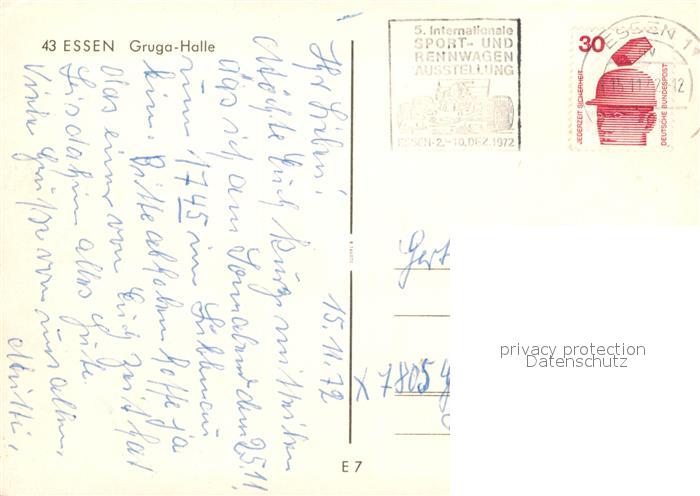 43 ESSEN Gruga-Halle
5. Internationale
SPORT- UND
RENNWAGEN
AUSSTELLUNG
ESSEN·2.-10.DEZ.1972
ESSEN 1
30
JEDERZEIT SICHERHEIT
DEUTSCHE BUNDESPOST
15.11.72
Ihr Lieben!
Möchte Euch kurz mitteilen
das ich am Sonnabend den 25.11.
um 17 45 in
bin. Bitte abholen hoffe ja
das einer von Euch Zeit hat
Bis dahin alles Gute
Viele Grüße von uns allen.
Mutti.
Gert
X 7805
E 7
privacy protection
Datenschutz